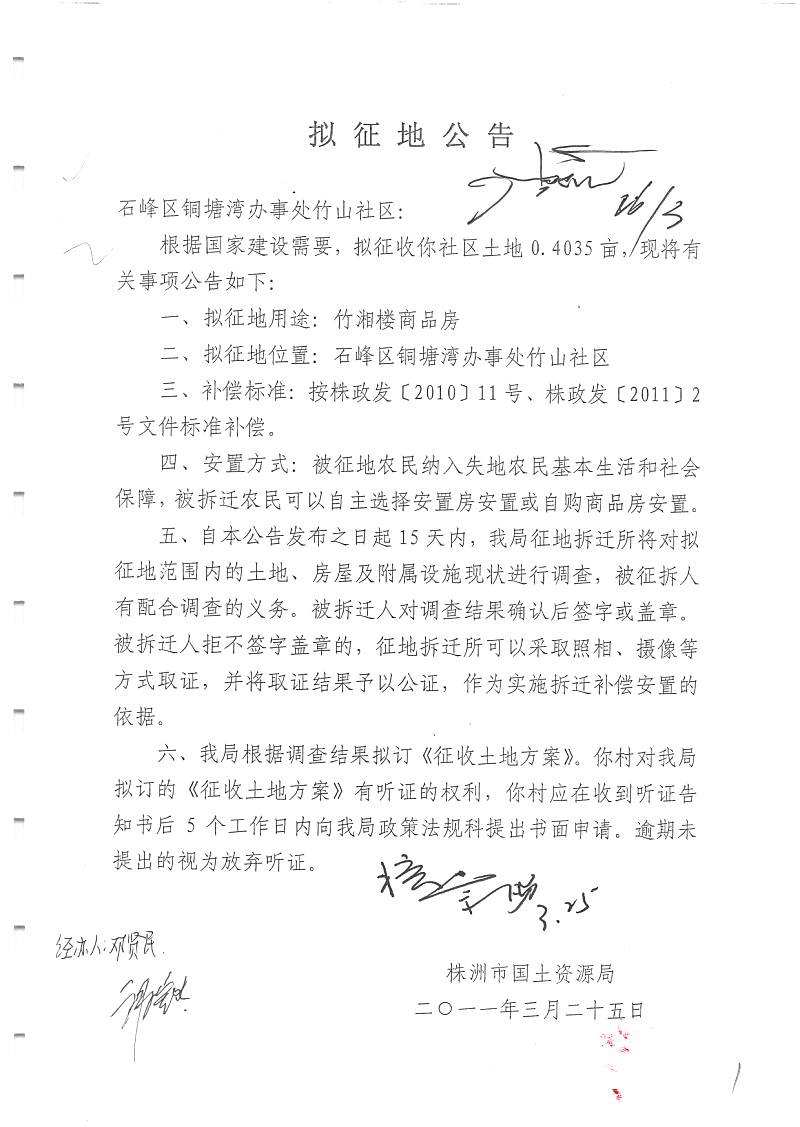 拟征地公告
26/3
石峰区铜塘湾办事处竹山社区：
根据国家建设需要，拟征收你社区土地0.4035亩，现将有
关事项公告如下：
一、拟征地用途：竹湘楼商品房
二、拟征地位置：石峰区铜塘湾办事处竹山社区
三、补偿标准：按株政发〔2010〕11号、株政发〔2011〕2
号文件标准补偿。
四、安置方式：被征地农民纳入失地农民基本生活和社会
保障，被拆迁农民可以自主选择安置房安置或自购商品房安置。
五、自本公告发布之日起15天内，我局征地拆迁所将对拟
征地范围内的土地、房屋及附属设施现状进行调查，被征拆人
有配合调查的义务。被拆迁人对调查结果确认后签字或盖章。
被拆迁人拒不签字盖章的，征地拆迁所可以采取照相、摄像等
方式取证，并将取证结果予以公证，作为实施拆迁补偿安置的
依据。
六、我局根据调查结果拟订《征收土地方案》。你村对我局
拟订的《征收土地方案》有听证的权利，你村应在收到听证告
知书后5个工作日内向我局政策法规科提出书面申请。逾期未
提出的视为放弃听证。
3.25
经办人：邓贤民
株洲市国土资源局
二〇一一年三月二十五日
1